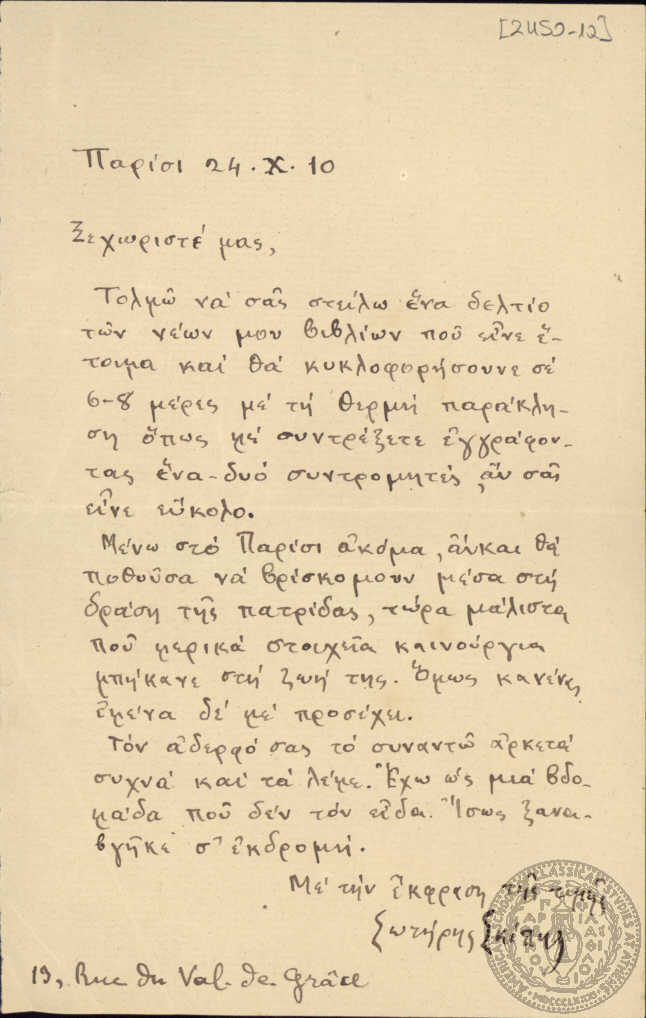 [2459-12]
Παρίσι 24.X.10
Ξεχωριστέ μας,
Τολμῶ νά σᾶς στείλω ἕνα δελτίο
τῶν νέων μου βιβλίων ποῦ εἶνε ἕ-
τοιμα καί θά κυκλοφορήσουνε σέ
6-8 μέρες μέ τή θερμή παράκλη-
ση ὅπως μέ συντρέξετε ἐγγράφον-
τας ἕνα-δυό συντρομητές, ἄν σᾶς
εἶνε εὔκολο.
Μένω στό Παρίσι ἀκόμα, ἄνκαι θά
ποθοῦσα νά βρίσκομουν μέσα στή
δράση τῆς πατρίδας, τώρα μάλιστα
ποῦ μερικά στοιχεῖα καινούργια
μπήκανε στή ζωή της. Ὅμως κανένας
ἐμένα δέ μέ προσέχει.
Τόν ἀδερφό σας τό συναντῶ ἀρκετά
συχνά καί τά λέμε. Ἔχω ὡς μιά βδο-
μάδα ποῦ δέν τόν εἶδα. Ἴσως ξανα-
βγῆκε σ' ἐκδρομή.
Μέ τήν ἔκφραση τῆς τιμῆς
Σωτήρης Σκίπης
13, Rue du Val-de-Grâce
AMERICAN SCHOOL OF CLASSICAL STUDIES AT ATHENS
MDCCCLXXXI